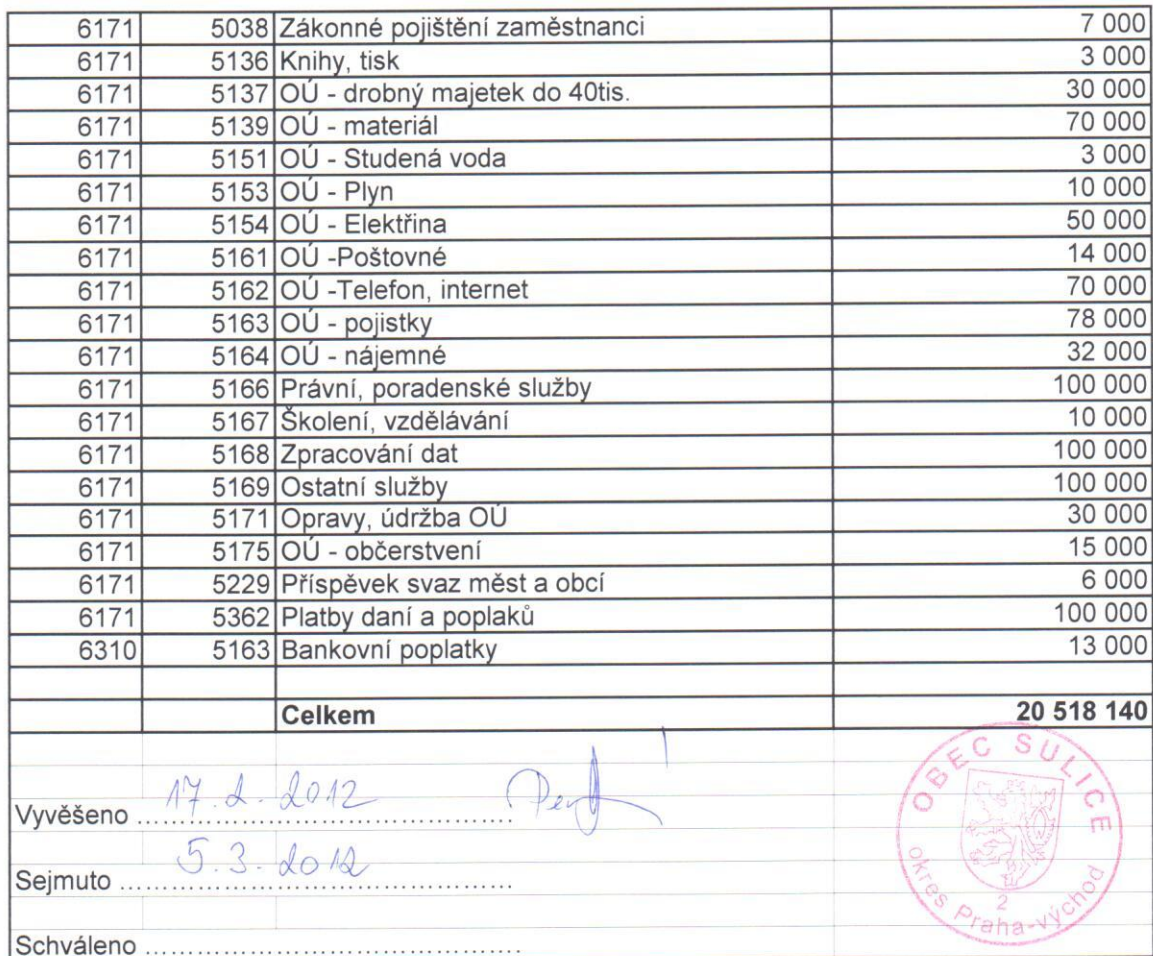 6171 5038 Zákonné pojištění zaměstnanci 7 000
6171 5136 Knihy, tisk 3 000
6171 5137 OÚ - drobný majetek do 40tis. 30 000
6171 5139 OÚ - materiál 70 000
6171 5151 OÚ - Studená voda 3 000
6171 5153 OÚ - Plyn 10 000
6171 5154 OÚ - Elektřina 50 000
6171 5161 OÚ -Poštovné 14 000
6171 5162 OÚ -Telefon, internet 70 000
6171 5163 OÚ - pojistky 78 000
6171 5164 OÚ - nájemné 32 000
6171 5166 Právní, poradenské služby 100 000
6171 5167 Školení, vzdělávání 10 000
6171 5168 Zpracování dat 100 000
6171 5169 Ostatní služby 100 000
6171 5171 Opravy, údržba OÚ 30 000
6171 5175 OÚ - občerstvení 15 000
6171 5229 Příspěvek svaz měst a obcí 6 000
6171 5362 Platby daní a poplaků 100 000
6310 5163 Bankovní poplatky 13 000
Celkem 20 518 140
Vyvěšeno 17. 2. 2012
Sejmuto 5. 3. 2012
Schváleno
OBEC SULICE
okres Praha-východ
2